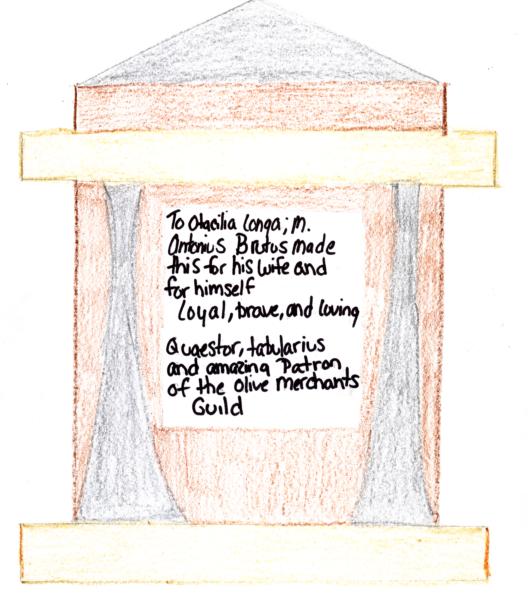 To Otacilia Longa; M.
Antonius Brutus made
this for his wife and
for himself
Loyal, brave, and loving
Quaestor, tabularius
and amazing Patron
of the Olive merchants
Guild